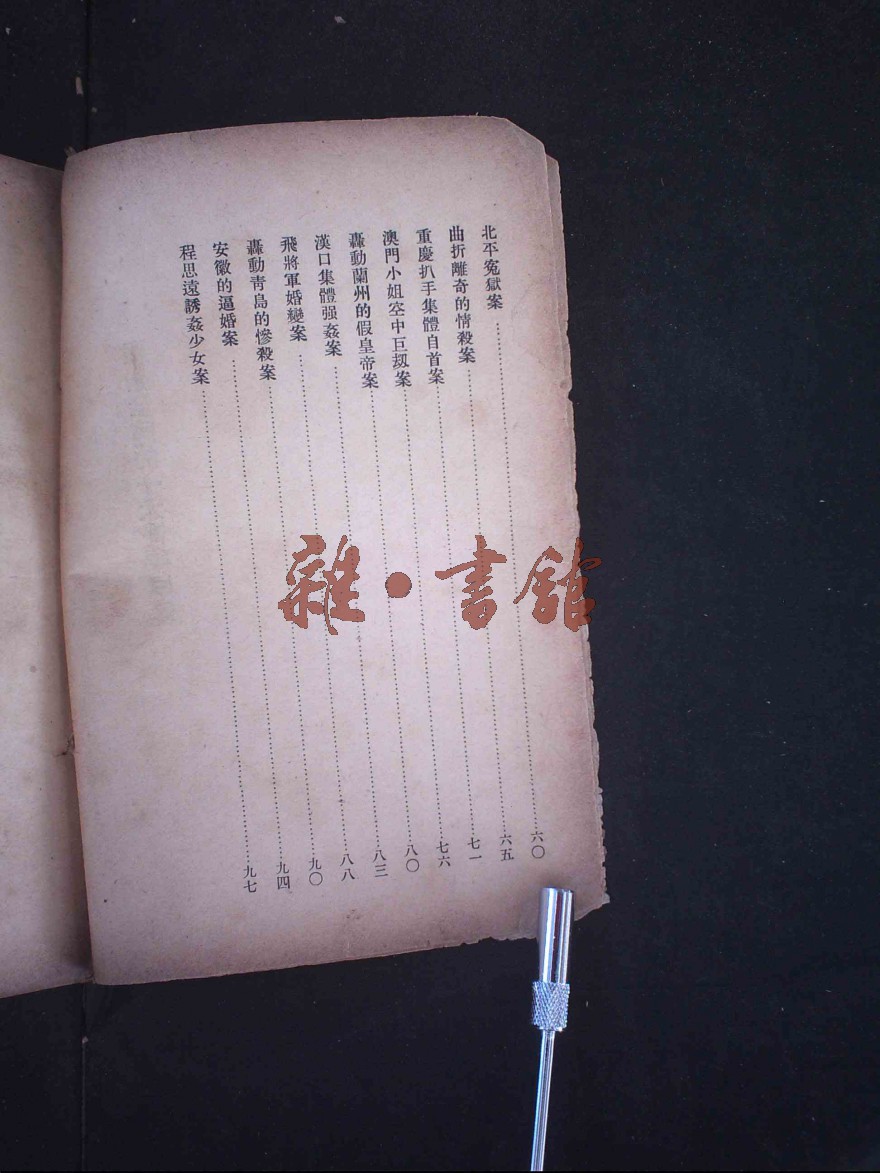 北平冤獄案……六〇
曲折離奇的情殺案……六五
重慶扒手集體自首案……七一
澳門小姐空中巨刼案……七六
轟動蘭州的假皇帝案……八〇
漢口集體强姦案……八三
飛將軍婚變案……八八
轟動靑島的慘殺案……九〇
安徽的逼婚案……九四
程思遠誘姦少女案……九七
雜·書館